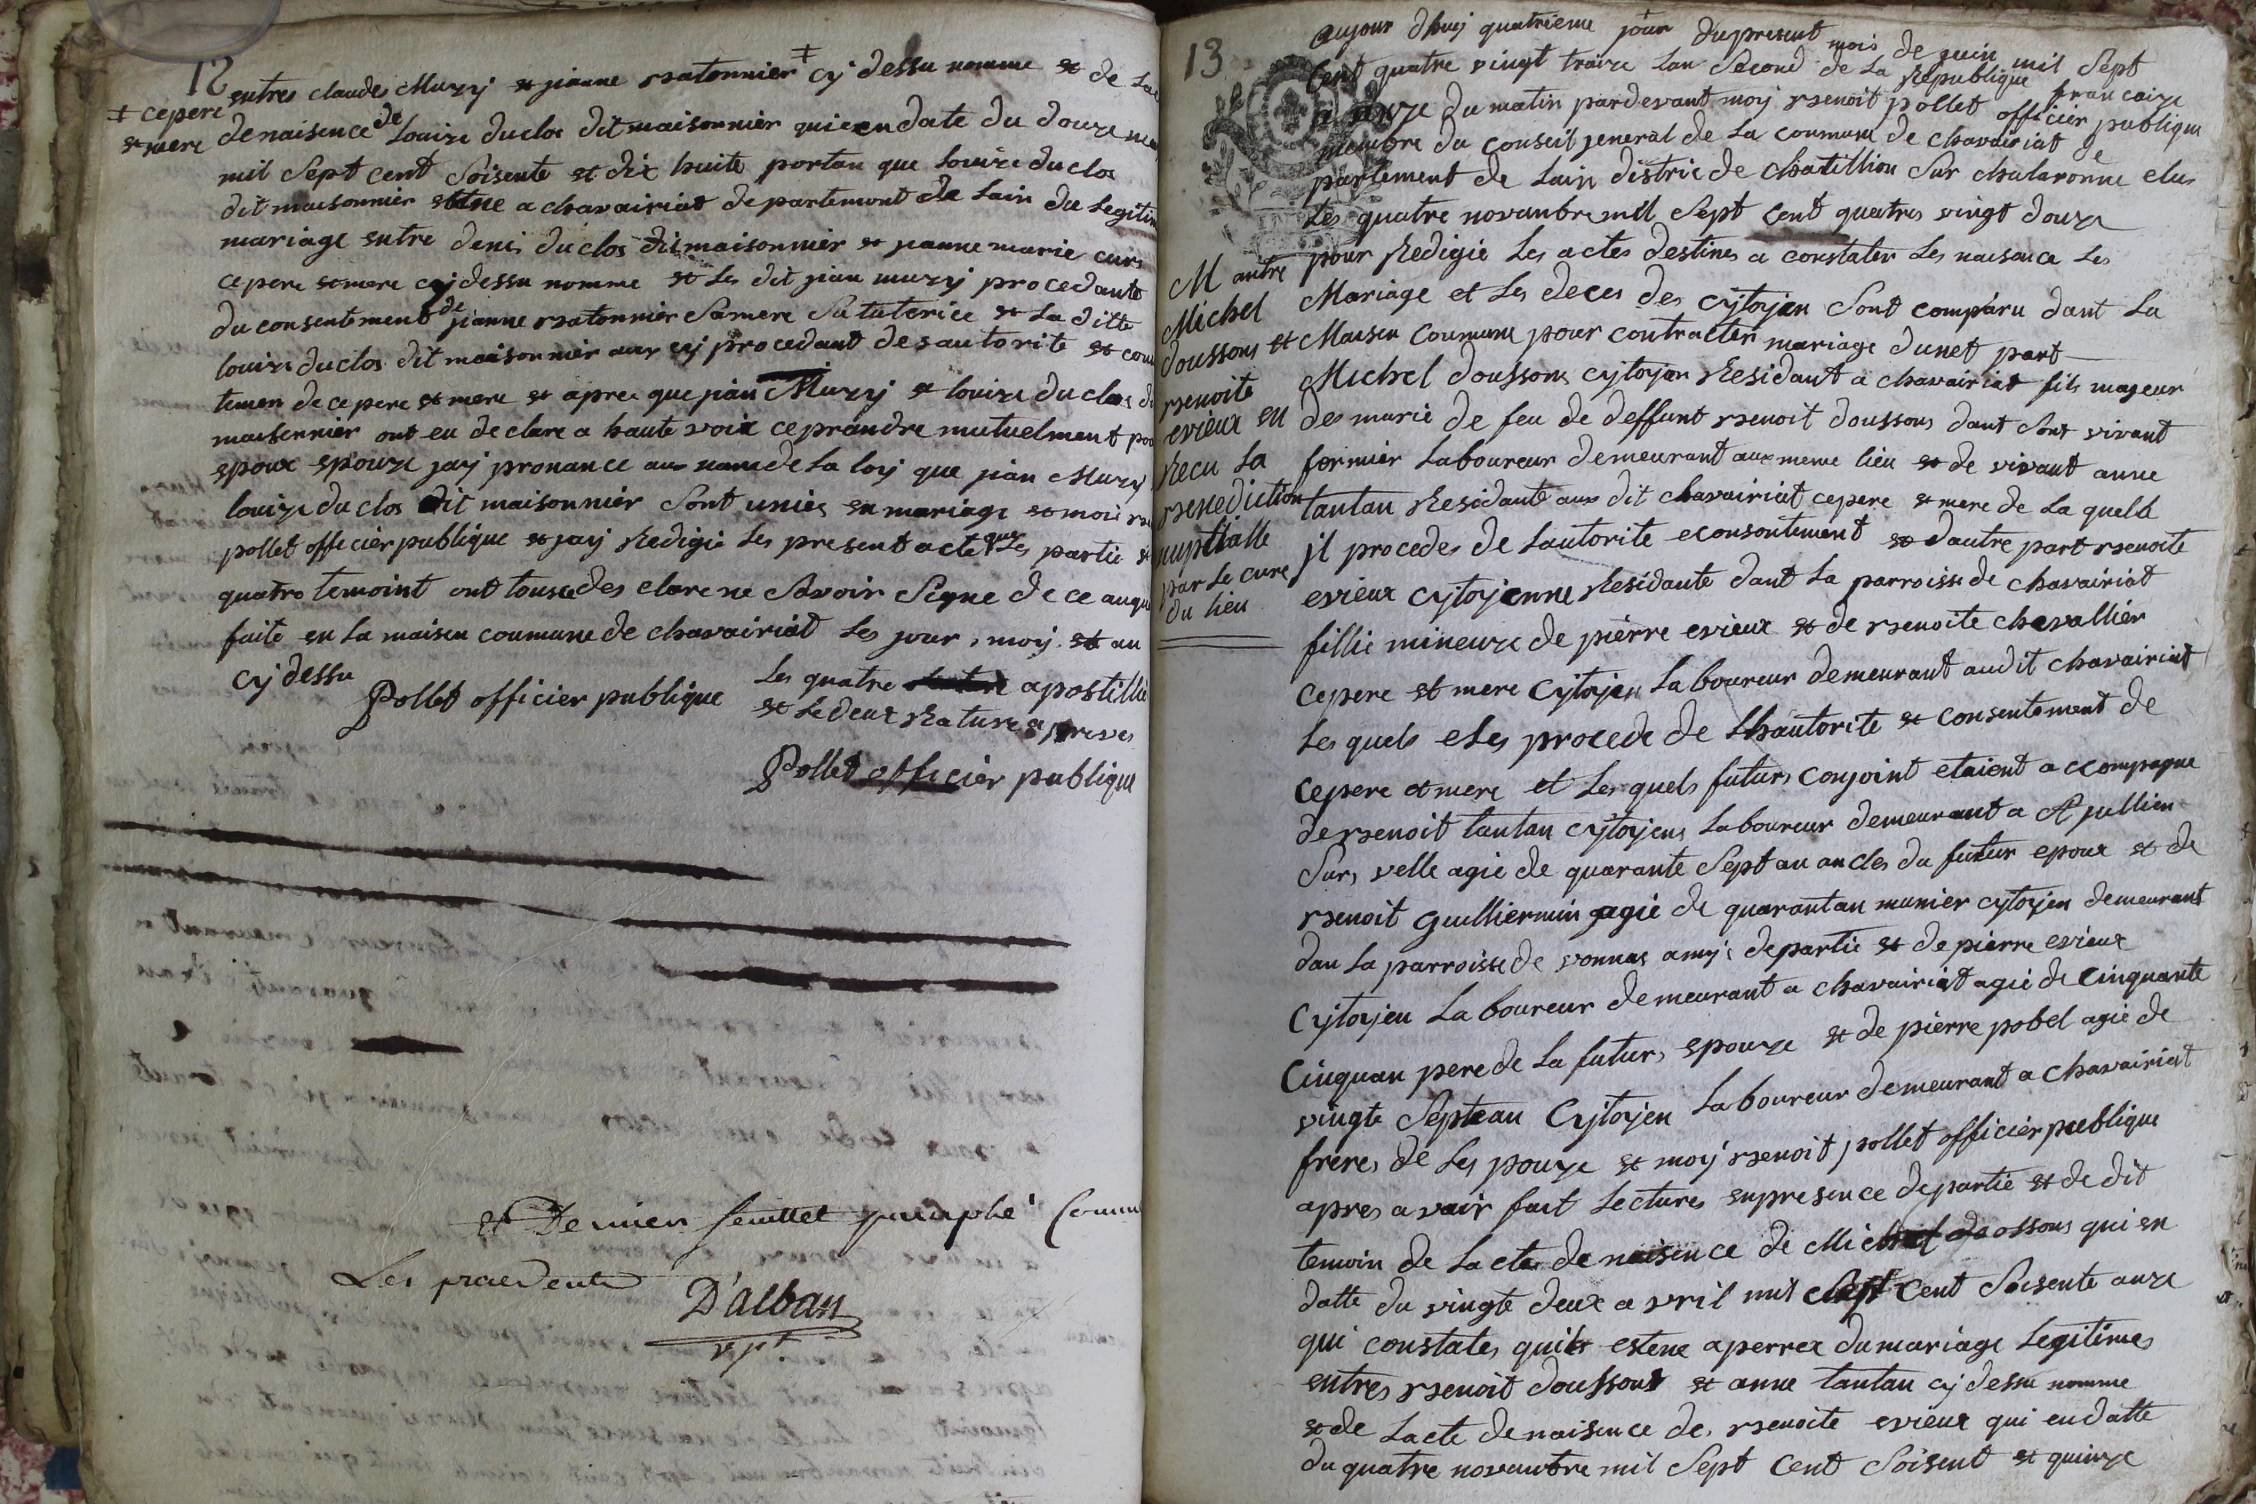 12
entres claudes Muzy et jeanne rsatonnier ‡ cy dessu nomme et de La
‡ cepere
et mere
denaisence de Louize duclos dit maisonnier quien date du douze
mil Sept cent Soisente et dix huite portan que Louize duclos
dit maisonnier a chavairiat departement de Lain du Legitim
mariage entre deni duclos dit maisonnier et jeanne marie
cepere et mere cy dessu nomme et Les dit jian muzy procedante
du consentement de jianne rsatonnier Samere Sa tuterice et La ditte
louize duclos dit maisonnier aux procedant des autorite et con
temen de cepere et mere et apree que jian Muzy et louize duclos d
maisonnier ont eu declare a haute voix ceprandre mutuelment po
epoux epouze jay pronance au nom de La loy que jian Muzy
louize duclos dit maisonnier Sont unies en mariage et moi
pollet officier publique et jay Redigie Les present acte que Les partie
quatre temoint ont tousce des clare ne Savoir Signe de ce
faite en La maison coumune de chavairiat Les jour, moy et an
cy dessu
Pollet officier publique
Les quatre apostillie
et Le deux Rature
Pollet officier publique
et Dernier feuillet paraphé Comm
Les precedents
D'alban
vpt
13
aujour dhuy quatrieme jour dupresent mois de juin mil Sept
Cent quatre vingt traize Lan Second de La Republique francaize
a onze du matin pardevant moy rsenoit pollet officier publique
membre du conseil jeneral de La coumune de chavairiat de
partement de Lain distric de chatillion Sur chalaronne elu
Les quatre novanbre mil Sept Cent quatres vingt douze
pour Redigie Les actes destines a constater Les naisence Les
Mariage et Les deces des cytoyen Sont comparu dant La
Maisen Coumune pour contracter mariage dunet part
M antre
Michel
doussons et
rsenoite
evieux en
Recu La
rsenediction
nuptialle
par Le cure
du lieu
Michel doussons cytoyen Residant a chavairiat fils majeur
des marie de feu de deffunt rsenoit doussons dant Sont vivant
formier Laboureur demeurant aux meme lieu et de vivant anne
tantan Residante aux dit chavairiat cepere et mere de La quelle
jl procedes de Lautorite econsontement et dautre part rsenoite
evieux cytoyenne Residante dant La parroisse de chavairiat
fillie mineuze de pierre evieux et de rsenoite chevallier
cepere et mere Cytoyen Laboureur demeurant audit chavairiat
Les quels eles procede de Lhautorite et consentement de
cepere et mere et Les quels futurs conjoint etaient accompagne
de rsenoit tantan cytoyens Laboureur demeurant a St jullien
Surs velle agie de quarante Sept an ancles du futur epoux et de
rsenoit guilliermin agie de quarantan munier cytoyen demeurant
dan La parroisse de vonnas amys departie et de pierre evieux
Cytoyen Laboureur demeurant a chavairiat agie de Cinquante
Cinquan pere de La futur, epouze et de pierre pobel agie de
vingte Septeau Cytoyen Laboureur demeurant a chavairiat
freres de Les pouze et moy rsenoit pollet officier publique
apres avair fait Lectures enpresence departie et de dit
temoin de Lacte de naisence de Michel doossons qui en
datte du vingte deux avril mil Sept Cent Soisente auze
qui constates quils estene aperrex dumariage Legitimes
entres rsenoit doussons et anne tantan cy dessu nomme
et de Lacte denaisence de rsenoite evieux qui endatte
du quatre novanbre mil Sept Cent Soisent et quinze